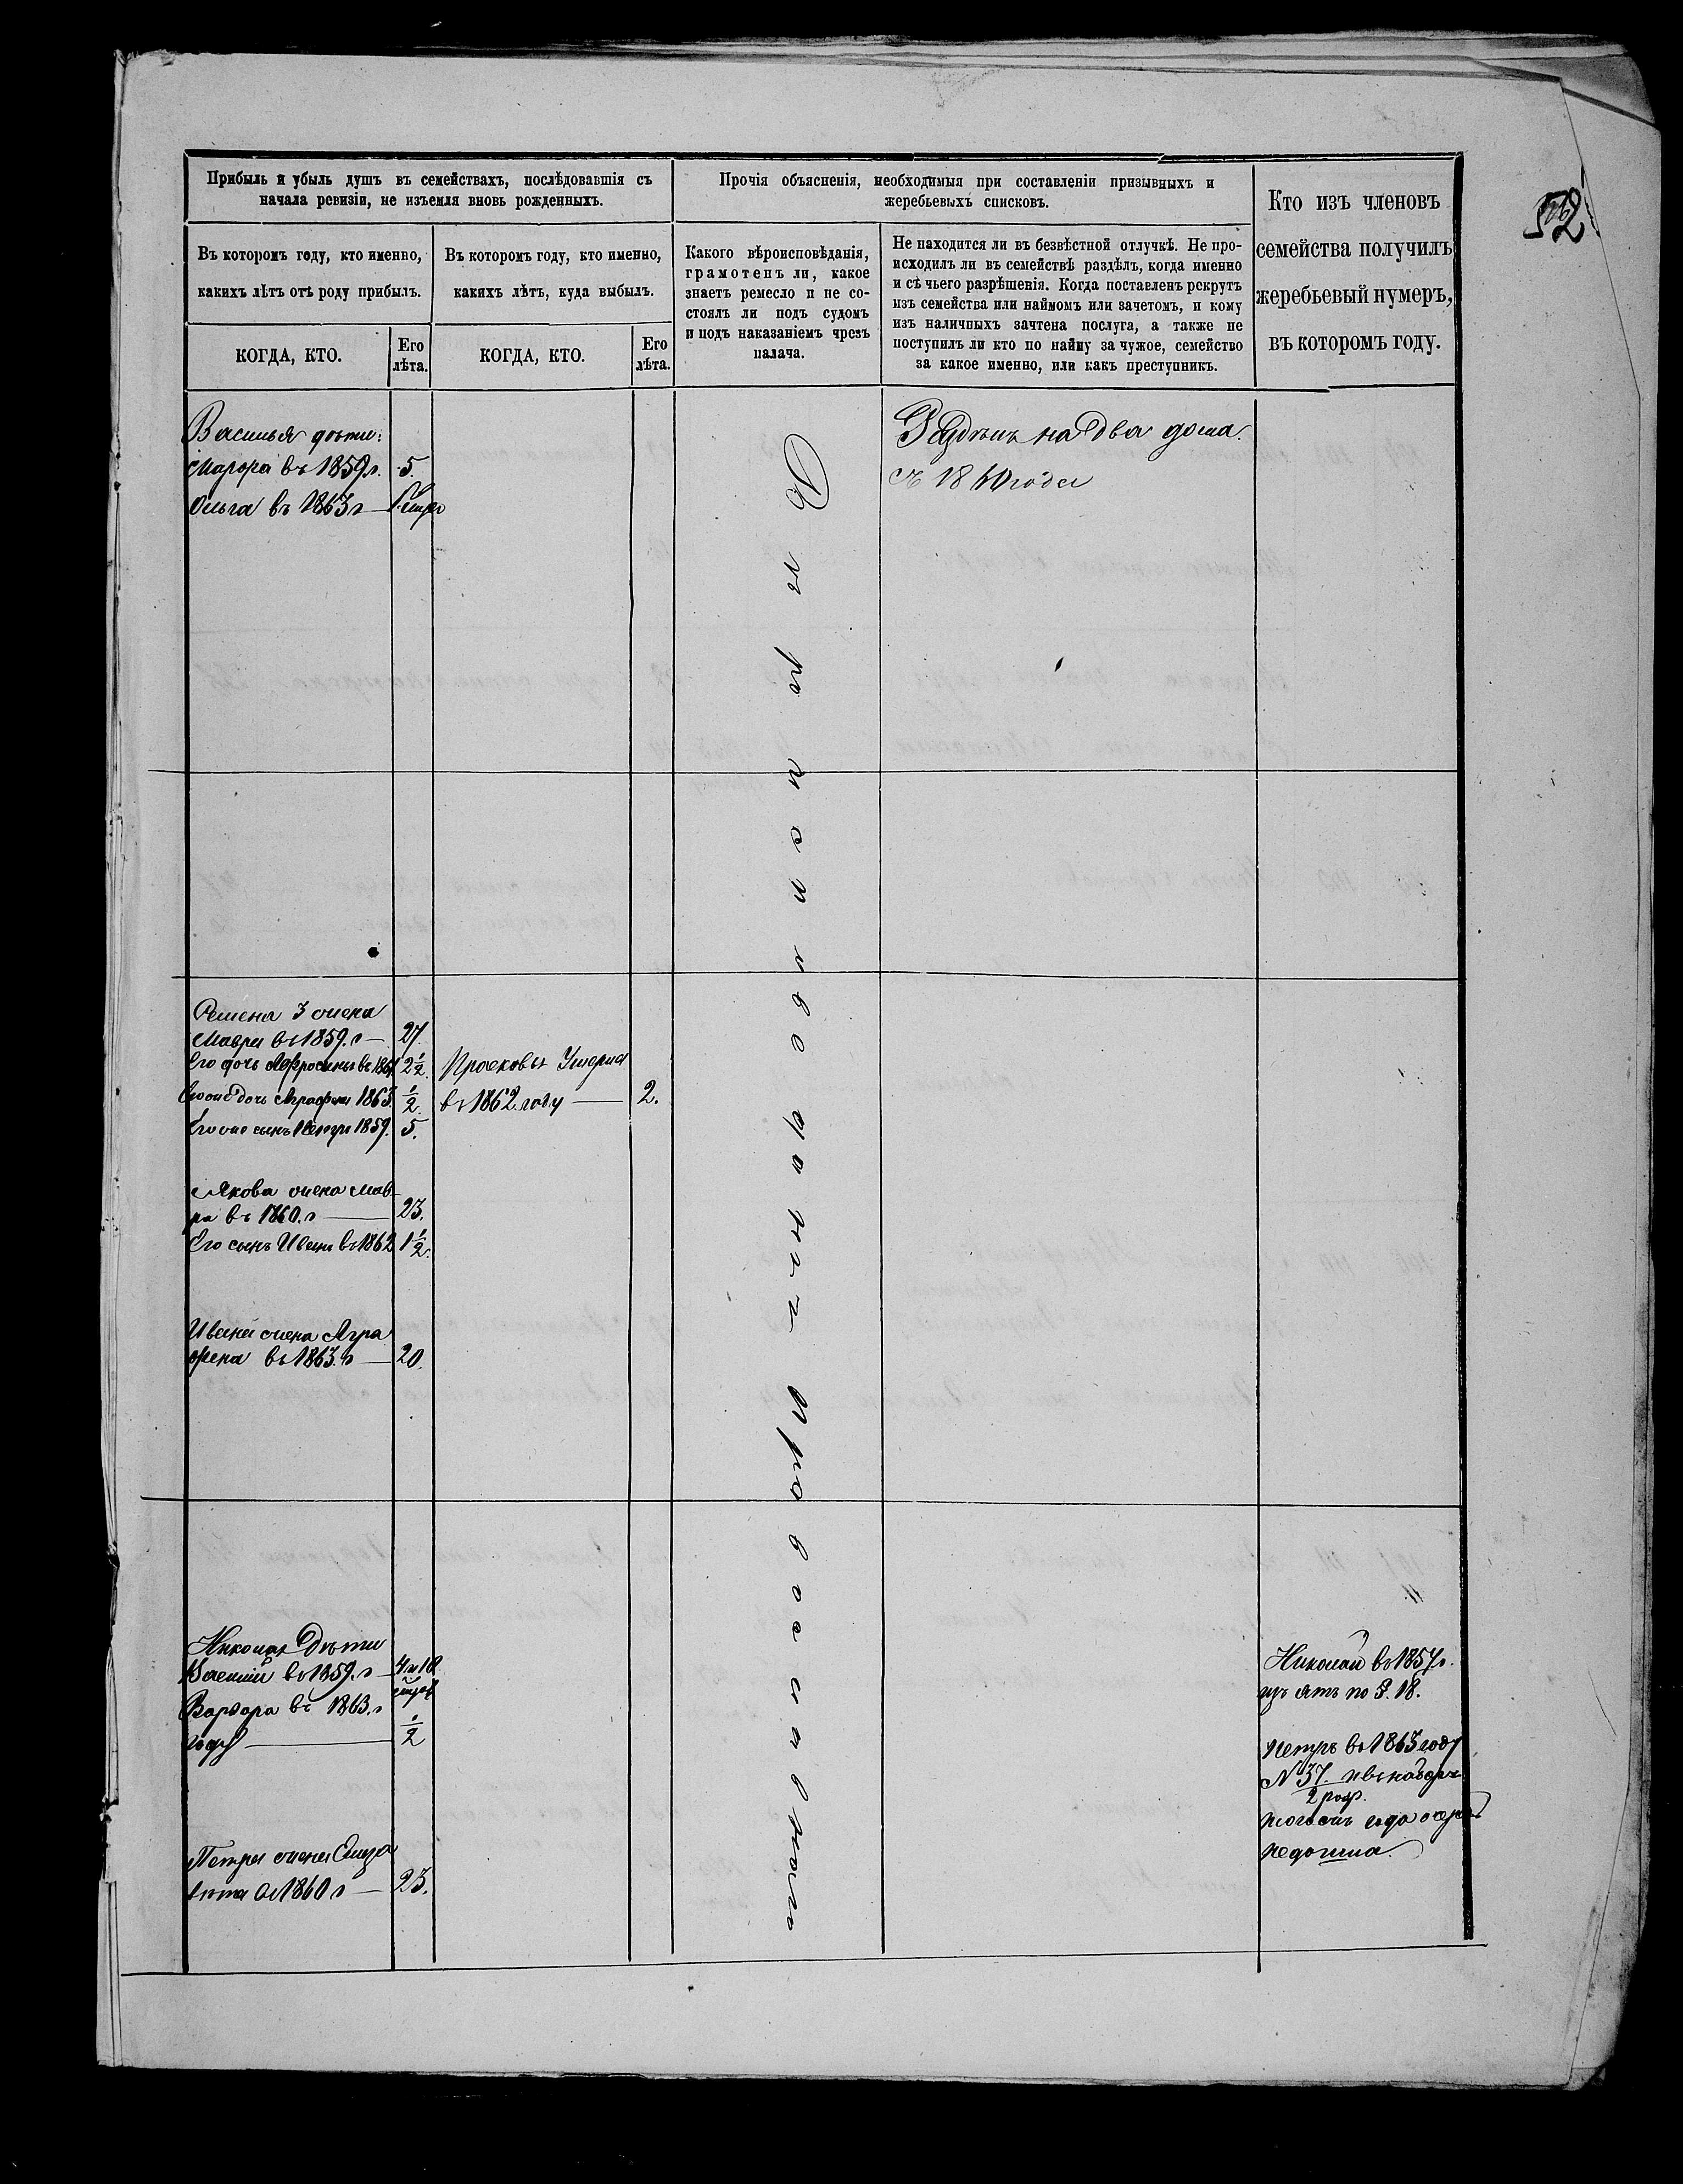 52
Прибыль и убыль душъ въ семействахъ, послѣдовавшія съ
начала ревизіи, не изъемля вновь рожденныхъ.
Прочія объясненія, необходимыя при составленіи призывныхъ и
жеребьевыхъ списковъ.
Кто изъ членовъ
семейства получилъ
жеребьевый нумеръ,
въ которомъ году.
Въ которомъ году, кто именно,
какихъ лѣтъ отъ роду прибылъ.
Въ которомъ году, кто именно,
какихъ лѣтъ, куда выбылъ.
Какого вѣроисповѣданія,
грамотенъ ли, какое
знаетъ ремесло и не со-
стоялъ ли подъ судомъ
и подъ наказаніемъ чрезъ
палача.
Не находится ли въ безвѣстной отлучкѣ. Не про-
исходилъ ли въ семействѣ раздѣлъ, когда именно
и съ чьего разрѣшенія. Когда поставленъ рекрутъ
изъ семейства или наймомъ или зачетомъ, и кому
изъ наличныхъ зачтена послуга, а также не
поступилъ ли кто по найму за чужое, семейство
за какое именно, или какъ преступникъ.
КОГДА, КТО.
Его
лѣта.
КОГДА, КТО.
Его
лѣта.
Василья дѣти:
Марфа въ 1859 г. 5.
Ольга въ 1863 г —
на два дома.
съ 1840 года
Семена жена
Мавра въ 1859. г — 27.
Его дочь Афросинья въ 1861 2½.
Его же дочь Аграфена 1863. ½.
Его же сынъ Петръ 1859. 5.
Прасковья Умерла
въ 1862 году — 2.
Якова жена Мав-
ра въ 1860. г — 23.
Его сынъ Иванъ въ 1862 1½.
Ивана жена Агра
фена въ 1863. г — 20.
Николая Дѣти
Василий въ 1859. г — 4 и 10
Варвара въ 1863. г
году — ½
Петра жена Елиза
вета въ 1860 г — 23.
Вѣроисповеданія Православнаго
Николай въ 1854 г.
изъятъ по §. 18.
Петръ въ 1863 году
N 37.